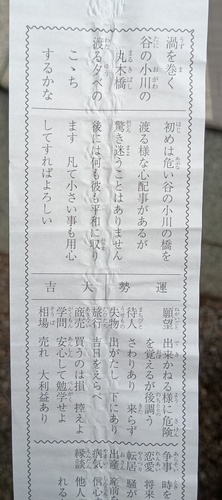 渦を巻く
谷の小川の
丸木橋
渡るタベの
こゝち
するかな
初めは危い谷の小川の橋を
渡る様な心配事があるが
驚き迷うことはありません
後には何も彼も平和に取り
ます 凡て小さい事も用心
してすればよろしい
運勢大吉
願望 出来かねる様に危険
を覚えるが後調う
待人 さわりあり 来らず
失物 出がたし 下にあり
旅行 吉日をえらべ
商売 買うのは損 控えよ
学問 安心して勉学せよ
相場 売れ 大利益あり
争事 時を
恋愛 将来
転居 騒が
出産 産前
病気 信心
縁談 他人
れる